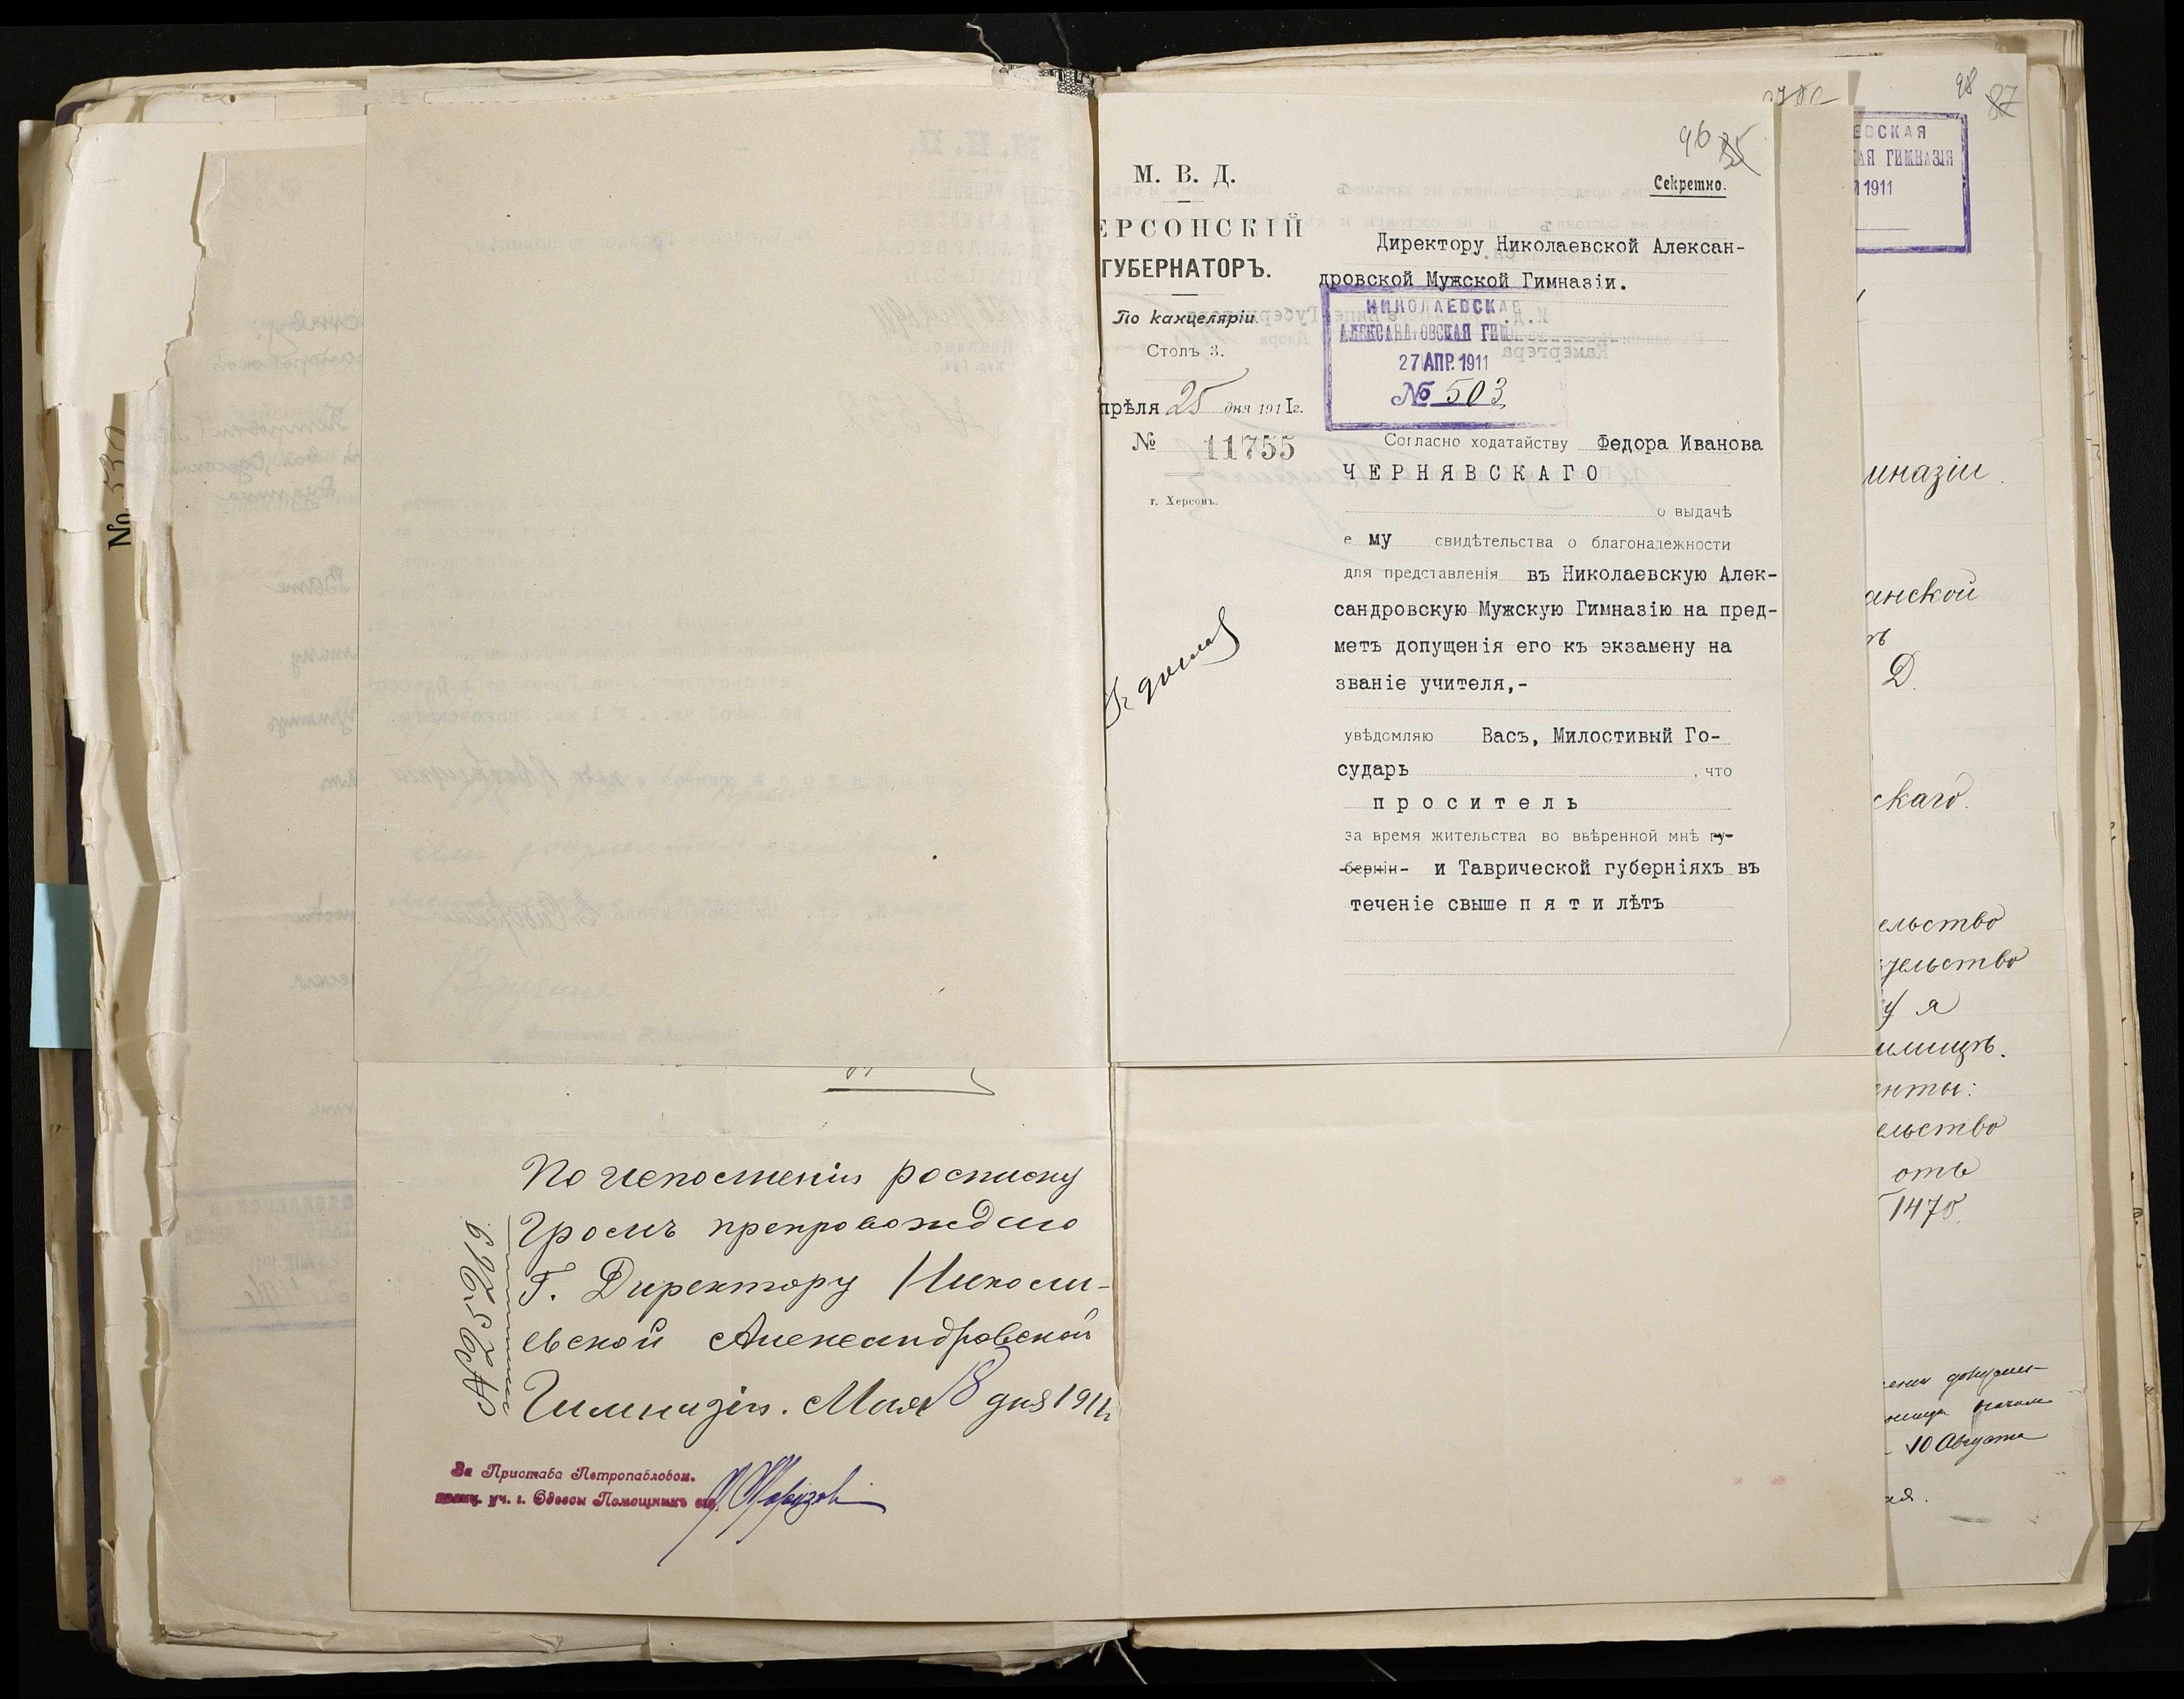 98 87
96 85
М. В. Д.
ЕРСОНСКІЙ
ГУБЕРНАТОРЪ.
По канцеляріи.
Столъ 3.
прѣля 25 дня 1911г.
№ 11755
г. Херсонъ.
Секретно.
Директору Николаевской Алексан-
дровской Мужской Гимназіи.
НИКОЛАЕВСКАЯ
АЛЕКСАНДРОВСКАЯ ГИМ
27 АПР. 1911
№ 503
Согласно ходатайству Федора Иванова
ЧЕРНЯВСКАГО
о выдачѣ
ему свидѣтельства о благонадежности
для представленія въ Николаевскую Алек-
сандровскую Мужскую Гимназію на пред-
метъ допущенія его къ экзамену на
званіе учителя,-
увѣдомляю Васъ, Милостивый Го-
сударь , что
проситель
за время жительства во ввѣренной мнѣ гу-
берніи- и Таврической губерніяхъ въ
теченіе свыше пяти лѣтъ
По исполненіи росписку
Гросмъ препровождаю
Г. Директору Никола-
евской Александровской
Гимназіи. Мая 18 дня 1911г
№25269
За Пристава Петропавловск.
полиц. уч. г. Одессы Помощникъ его
№ 530
ЕВСКАЯ
АЯ ГИМНАЗІЯ
1911
мназіи.
анской
Д.
скаго.
ельство
ельство
у я
илищъ.
енты:
ельство
отъ
1470
10 Августа
ая.